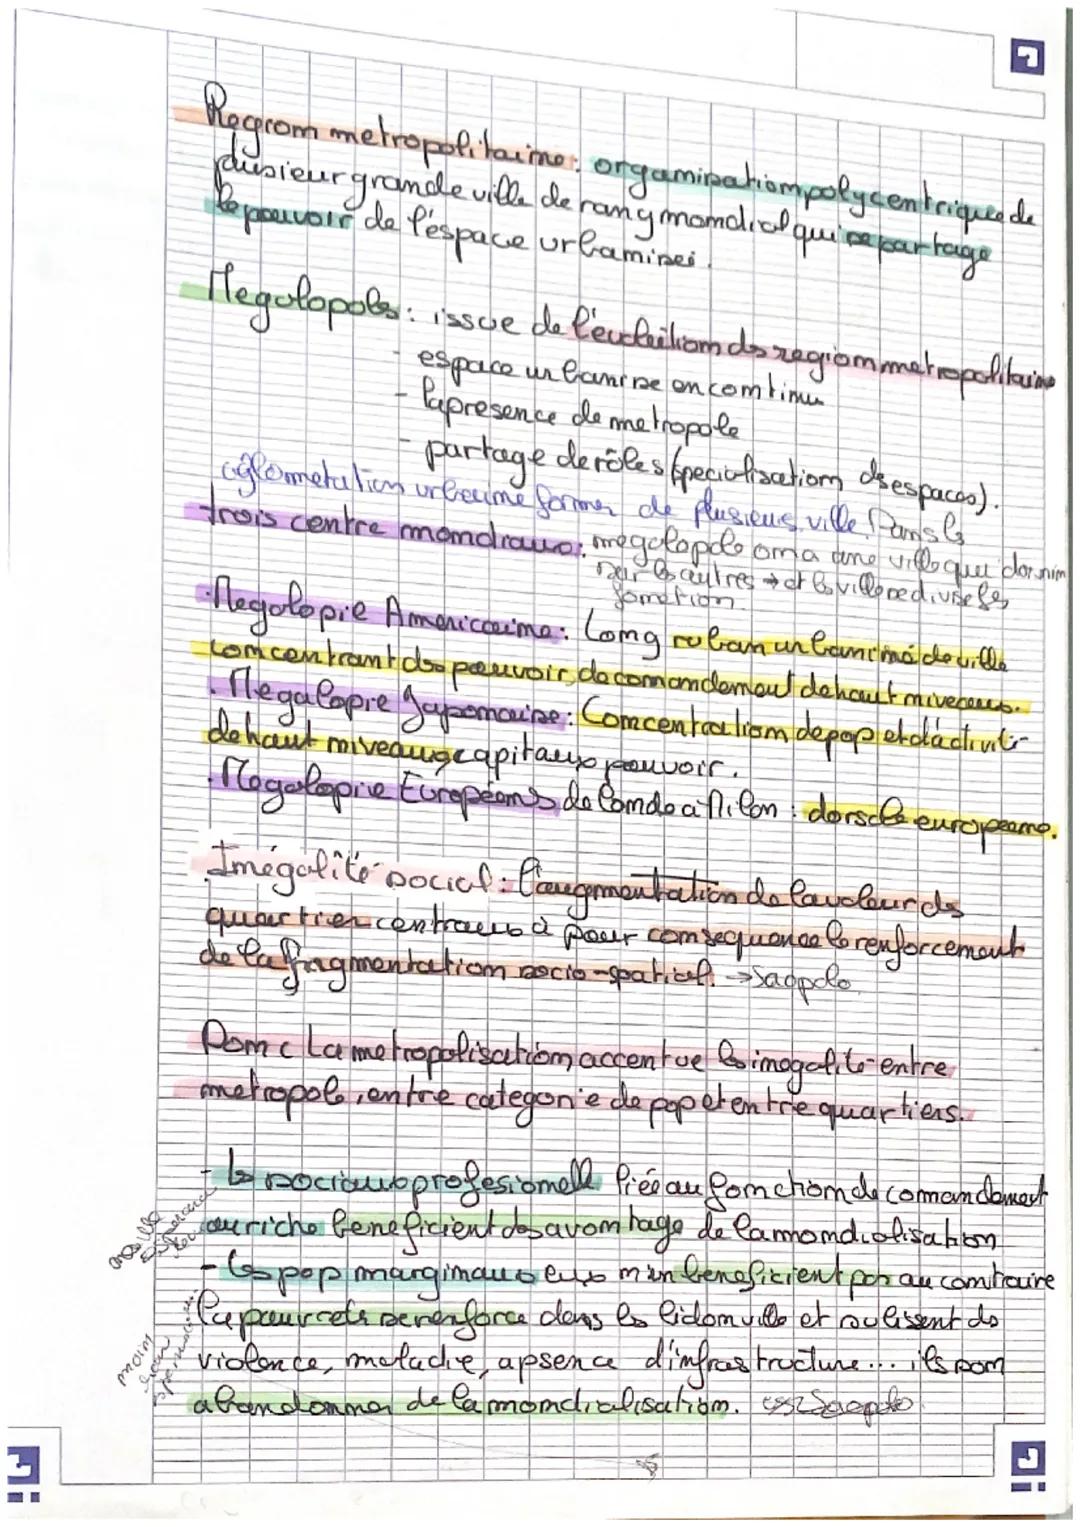 Region metropolitaine : organisation polycentrique de
plusieur grande ville de rang mondial qui se partage
le pouvoir de l'éspace urbanisei.
Megolopole : issue de l'evolution des region metropolitaine
- espace urbanise en continu
- la presence de metropole
- partage de rôles (specialisation des espaces).
aglometation urbaine former de plusieus ville. Dans les
trois centre mondiaux : megalopole on a une ville qui domin
sur les autres → et les ville se divise les
fonction
. Megolopie Americaine : Long ruban urbaniné de ville
concentrant des pouvoir de comandement de haut niveaux.
. Megalopie Japonaise : Concentration de pop et d'activité
de haut niveaux capitaux pouvoir.
. Megalopie Européens de Londe a Milan : dorsale europeene.
Inégalité social : l'augmentation de la valeur des
quartier centraux à pour consequence le renforcement
de la fragmentation socio-spatial. → Saopolo
Donc La metropolisation accentue les inegalité entre
metropole, entre categorie de pop et entre quartiers.
- les sociaux profesionelle liée au fonction de comandement
au riche beneficient des avantage de la mondialisation
- Les pop marginaux eux n'en beneficient pas au contraire
la pauvreté se renforce dans les bidonville et subissent des
violence, maladie, apsence d'infrastructure... ils son
abandonner de la mondialisation. Saopolo
moin